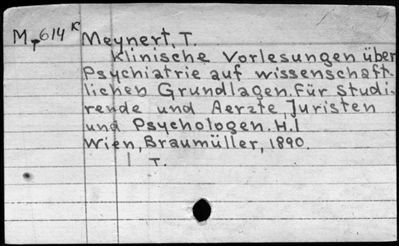 M,614 K Meynert, T.
Klinische Vorlesungen über
Psychiatrie auf wissenschaft-
lichen Grundlagen. Für Studi-
rende und Aerzte, Juristen
und Psychologen. H.1
Wien, Braumüller, 1890.
T.